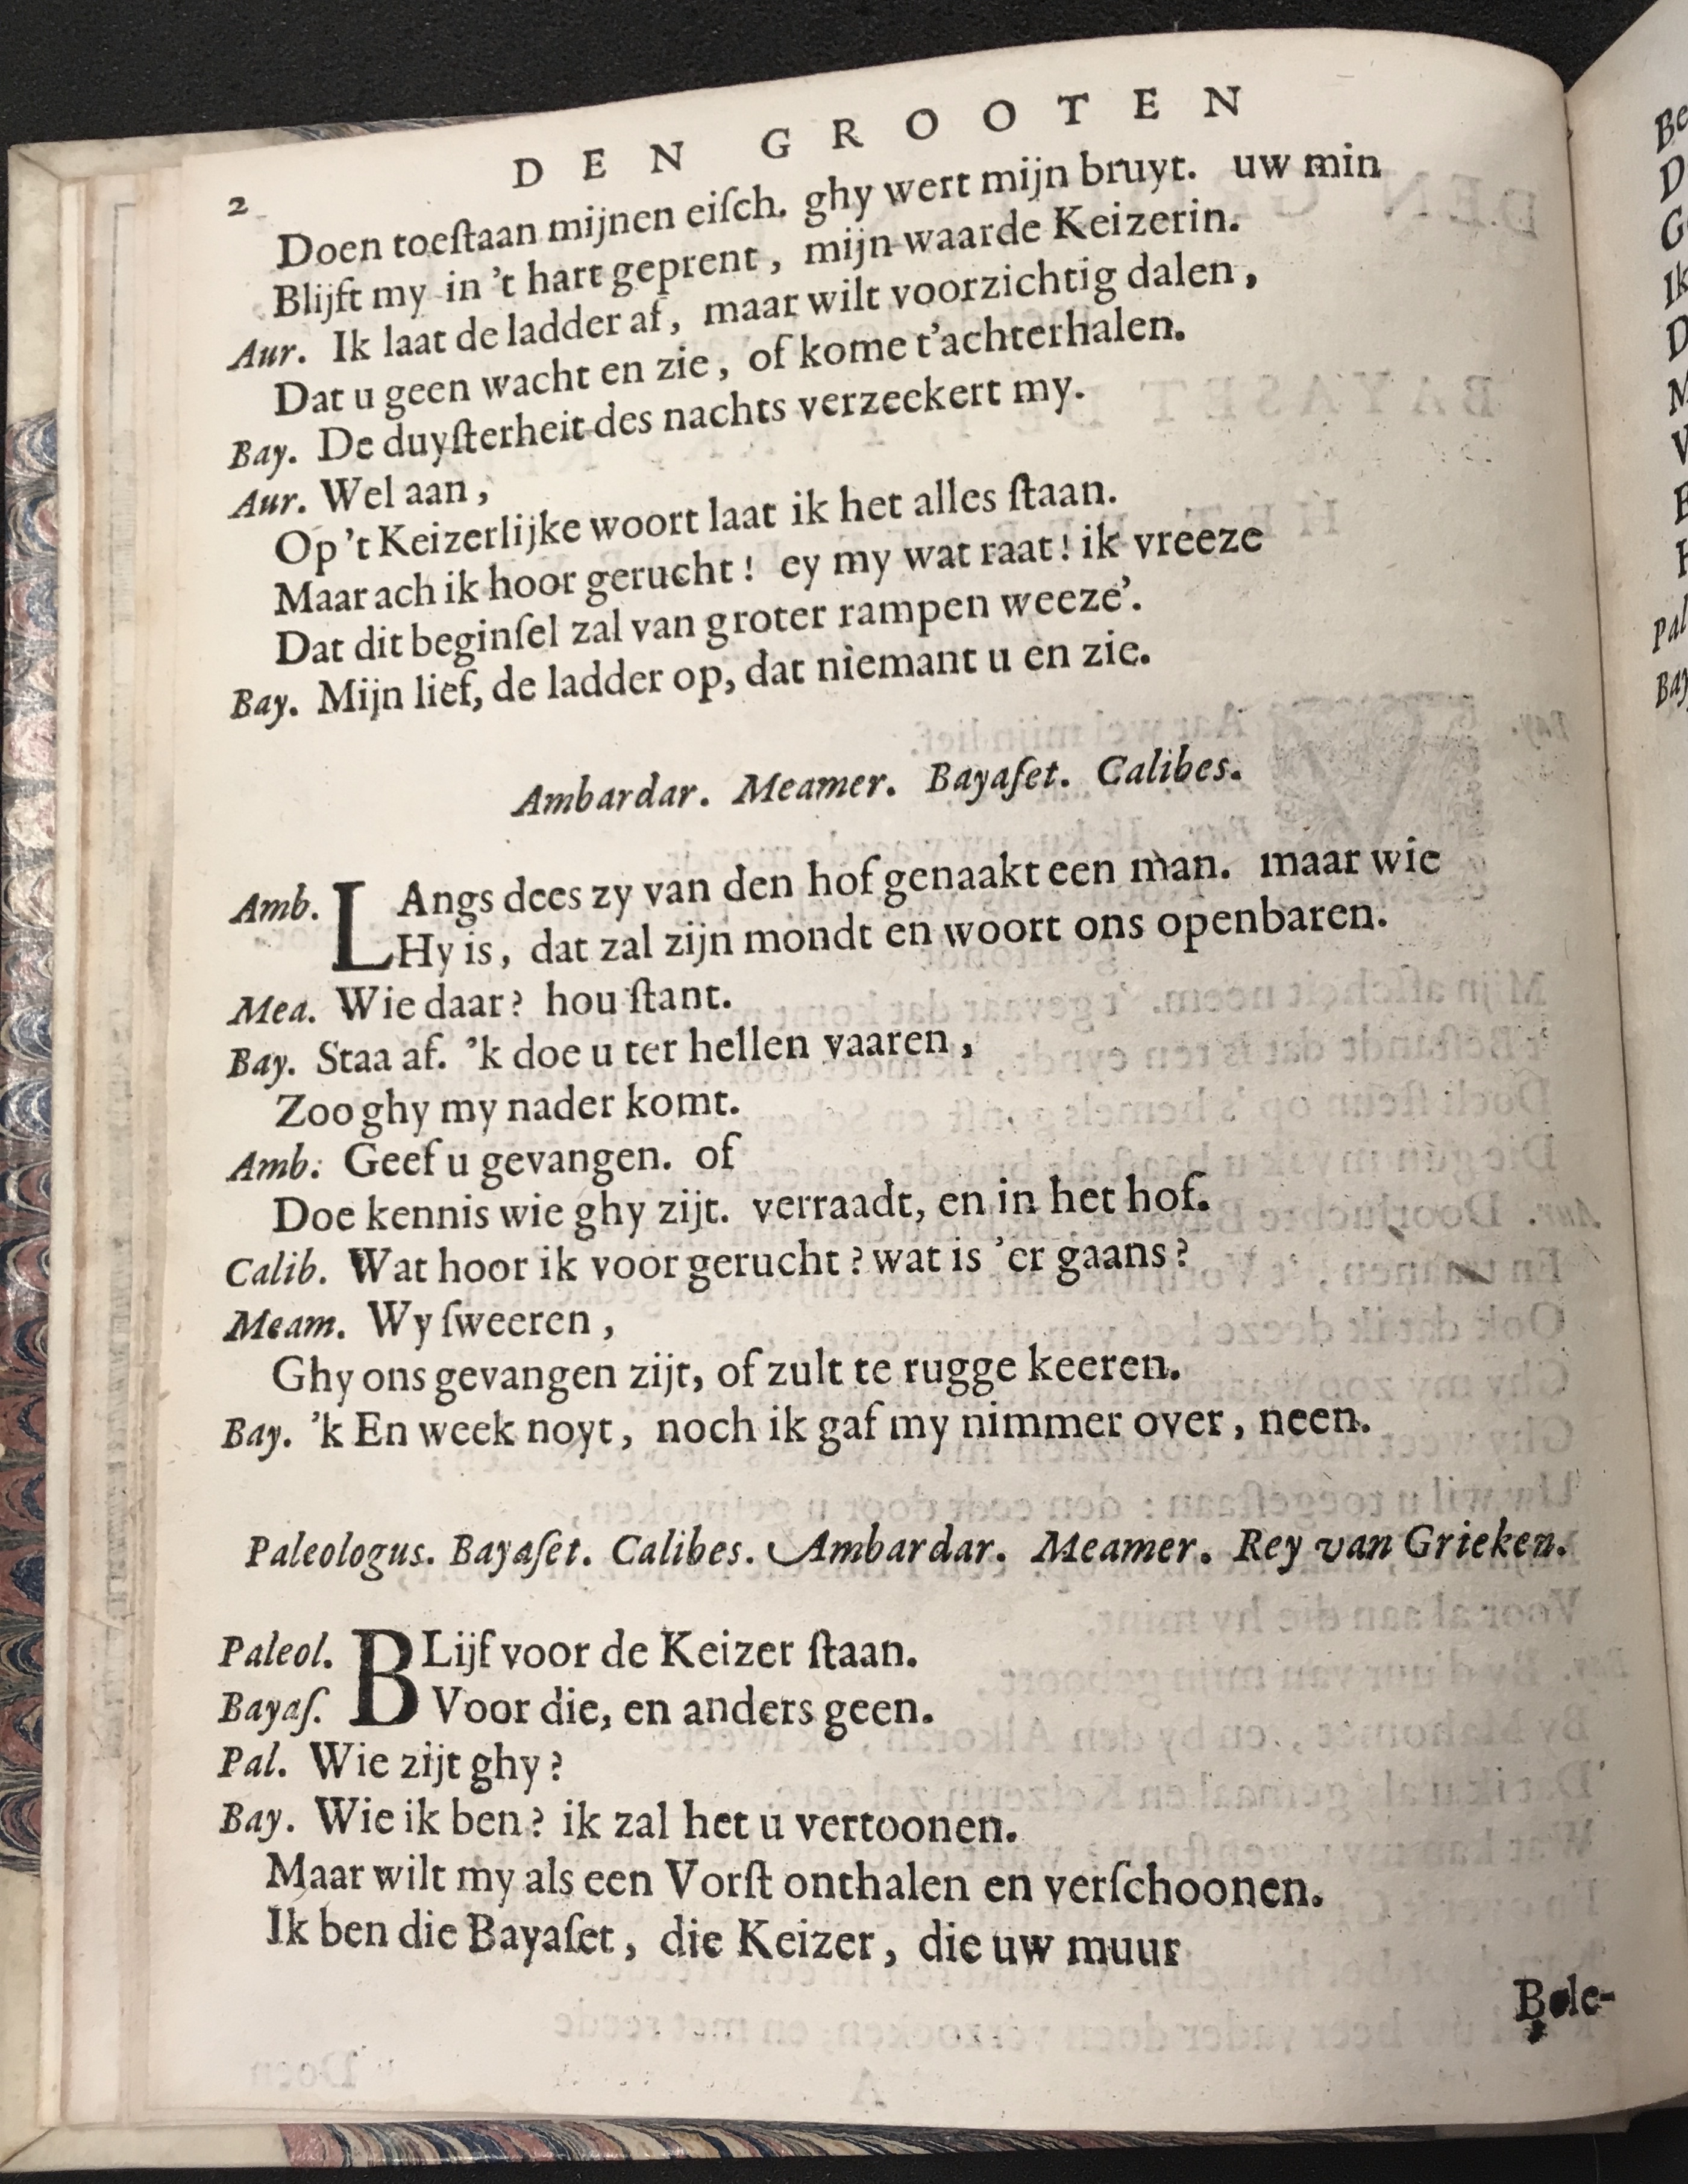 2 DEN GROOTEN
Doen toeſtaan mijnen eiſch. ghy wert mijn bruyt. uw min
Blijft my in 't hart geprent, mijn waarde Keizerin.
Aur. Ik laat de ladder af, maar wilt voorzichtig dalen,
Dat u geen wacht en zie, of kome t'achterhalen.
Bay. De duyſterheit des nachts verzeekert my.
Aur. Wel aan,
Op 't Keizerlijke woort laat ik het alles ſtaan.
Maar ach ik hoor gerucht! ey my wat raat! ik vreeze
Dat dit beginſel zal van groter rampen weeze'.
Bay. Mijn lief, de ladder op, dat niemant u en zie.
Ambardar. Meamer. Bayaſet. Calibes.
Amb. LAngs dees zy van den hof genaakt een man. maar wie
Hy is, dat zal zijn mondt en woort ons openbaren.
Mea. Wie daar? hou ſtant.
Bay. Staa af. 'k doe u ter hellen vaaren,
Zoo ghy my nader komt.
Amb. Geef u gevangen. of
Doe kennis wie ghy zijt. verraadt, en in het hof.
Calib. Wat hoor ik voor gerucht? wat is 'er gaans?
Meam. Wy ſweeren,
Ghy ons gevangen zijt, of zult te rugge keeren.
Bay. 'k En week noyt, noch ik gaf my nimmer over, neen.
Paleologus. Bayaſet. Calibes. Ambardar. Meamer. Rey van Grieken.
Paleol. BLijf voor de Keizer ſtaan.
Bayaſ. Voor die, en anders geen.
Pal. Wie zijt ghy?
Bay. Wie ik ben? ik zal het u vertoonen.
Maar wilt my als een Vorſt onthalen en verſchoonen.
Ik ben die Bayaſet, die Keizer, die uw muur
Bele-